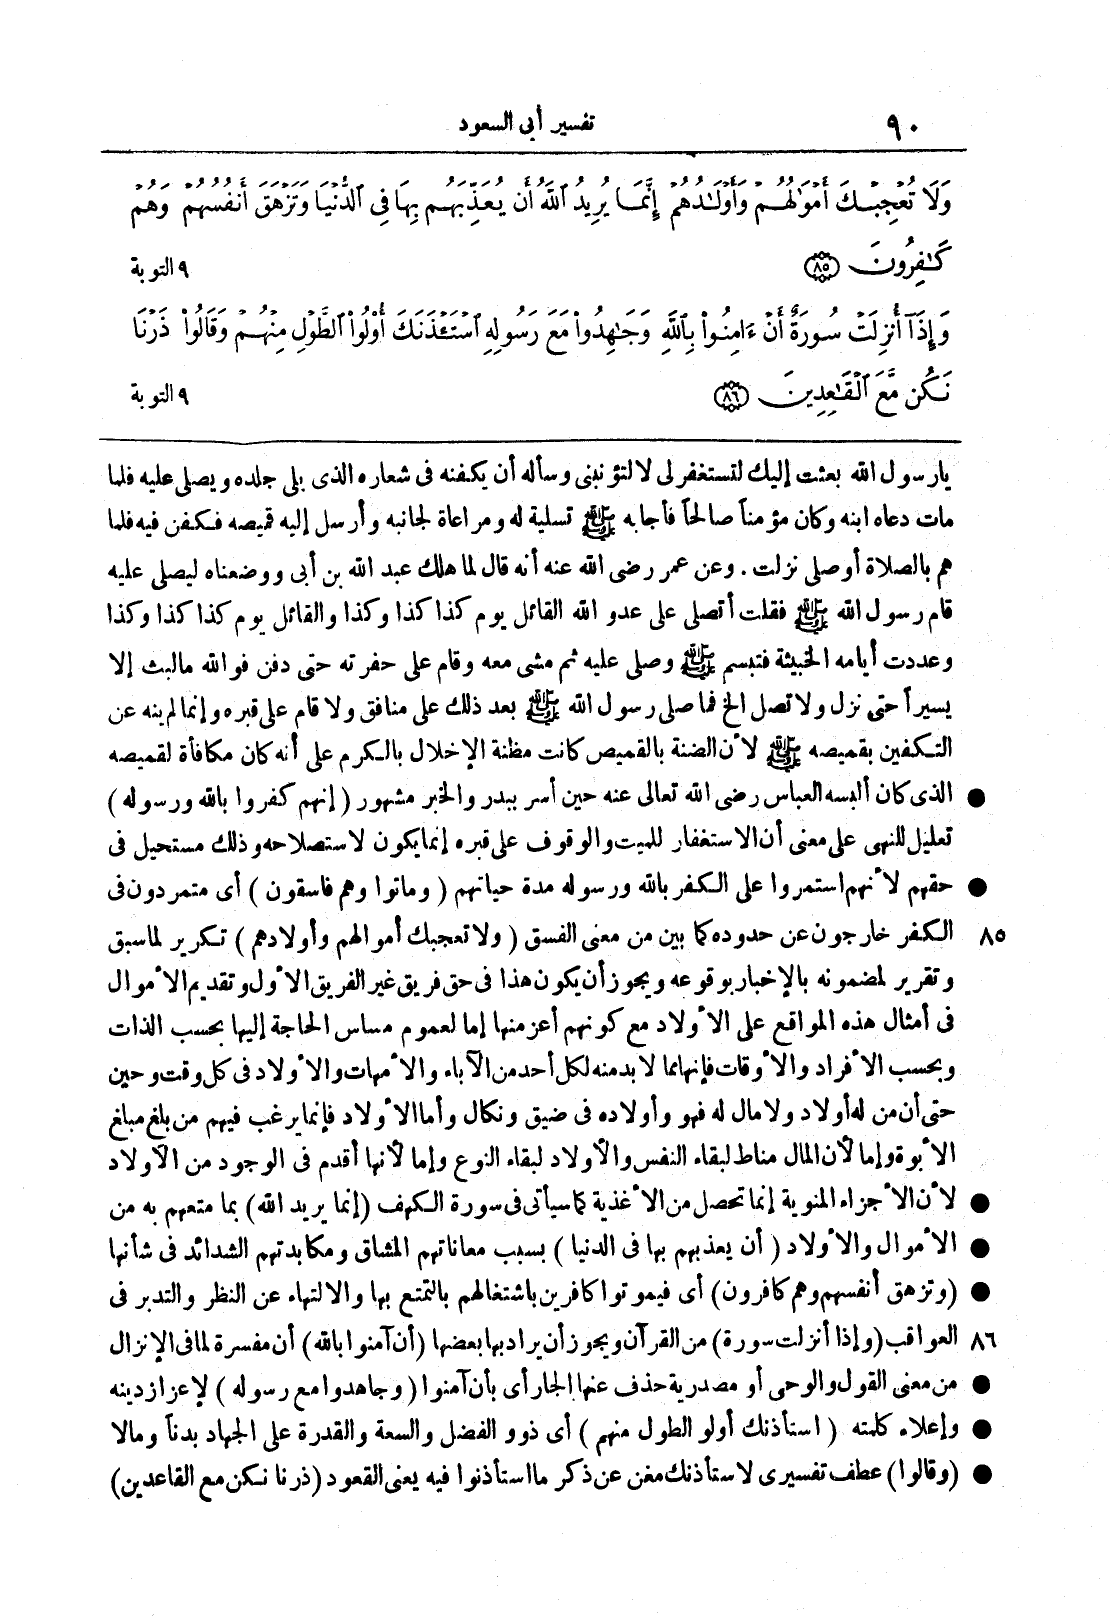 ٩٠ تفسير أبى السعود
وَلَا تُعْجِبْكَ أَمْوَٰلُهُمْ وَأَوْلَٰدُهُمْ إِنَّمَا يُرِيدُ ٱللَّهُ أَن يُعَذِّبَهُم بِهَا فِى ٱلدُّنْيَا وَتَزْهَقَ أَنفُسُهُمْ وَهُمْ
كَٰفِرُونَ ٨٥ ٩ التوبة
وَإِذَآ أُنزِلَتْ سُورَةٌ أَنْ ءَامِنُوا۟ بِٱللَّهِ وَجَٰهِدُوا۟ مَعَ رَسُولِهِ ٱسْتَـْٔذَنَكَ أُو۟لُوا۟ ٱلطَّوْلِ مِنْهُمْ وَقَالُوا۟ ذَرْنَا
نَكُن مَّعَ ٱلْقَٰعِدِينَ ٨٦ ٩ التوبة
يارسول الله بعثت إليك لتستغفر لى لا لتؤنبنى وسأله أن يكفنه فى شعاره الذى يلى جلده ويصلى عليه فلما
مات دعاه ابنه وكان مؤمناً صالحاً فأجابه ﷺ تسلية له ومراعاة لجانبه وأرسل إليه قميصه فكفن فيه فلما
هم بالصلاة أو صلى نزلت . وعن عمر رضى الله عنه أنه قال لما هلك عبد الله بن أبى ووضعناه ليصلى عليه
قام رسول الله ﷺ فقلت أتصلى على عدو الله القائل يوم كذا كذا وكذا والقائل يوم كذا كذا وكذا
وعددت أيامه الخبيثة فتبسم ﷺ وصلى عليه ثم مشى معه وقام على حفرته حتى دفن فوالله مالبث إلا
يسيراً حتى نزل ولا تصل الخ فما صلى رسول الله ﷺ بعد ذلك على منافق ولا قام على قبره وإنما لم ينه عن
التكفين بقميصه ﷺ لأن الضنة بالقميص كانت مظنة الإخلال بالكرم على أنه كان مكافأة لقميصه
● الذى كان ألبسه العباس رضى الله تعالى عنه حين أسر ببدر والخبر مشهور ( إنهم كفروا بالله ورسوله )
تعليل للنهى على معنى أن الاستغفار للميت والوقوف على قبره إنما يكون لاستصلاحه وذلك مستحيل فى
● حقهم لأنهم استمروا على الكفر بالله ورسوله مدة حياتهم ( وماتوا وهم فاسقون ) أى متمردون فى
٨٥ الكفر خارجون عن حدوده كما بين من معنى الفسق ( ولا تعجبك أموالهم وأولادهم ) تكرير لما سبق
وتقرير لمضمونه بالإخبار بوقوعه ويجوز أن يكون هذا فى حق فريق غير الفريق الأول وتقديم الأموال
فى أمثال هذه المواقع على الأولاد مع كونهم أعز منها إما لعموم مساس الحاجة إليها بحسب الذات
وبحسب الأفراد والأوقات فإنها مما لا بد منه لكل أحد من الآباء والأمهات والأولاد فى كل وقت وحين
حتى أن من له أولاد ولا مال له فهو وأولاده فى ضيق ونكال وأما الأولاد فإنما يرغب فيهم من بلغ مبلغ
الأبوة وإما لأن المال مناط لبقاء النفس والأولاد لبقاء النوع وإما لأنها أقدم فى الوجود من الأولاد
● لأن الأجزاء المنوية إنما تحصل من الأغذية كما سيأتى فى سورة الكهف (إنما يريد الله) بما متعهم به من
● الأموال والأولاد ( أن يعذبهم بها فى الدنيا ) بسبب معاناتهم المشاق ومكابدتهم الشدائد فى شأنها
● (وتزهق أنفسهم وهم كافرون) أى فيموتوا كافرين باشتغالهم بالتمتع بها والالتهاء عن النظر والتدبر فى
٨٦ العواقب (وإذا أنزلت سورة) من القرآن ويجوز أن يراد بها بعضها (أن آمنوا بالله) أن مفسرة لما فى الإنزال
● من معنى القول والوحى أو مصدرية حذف عنها الجار أى بأن آمنوا ( وجاهدوا مع رسوله ) لإعزاز دينه
● وإعلاء كلمته ( استأذنك أولو الطول منهم ) أى ذوو الفضل والسعة والقدرة على الجهاد بدناً ومالا
● (وقالوا) عطف تفسيرى لاستأذنك مغن عن ذكر ما استأذنوا فيه يعنى القعود (ذرنا نكن مع القاعدين)